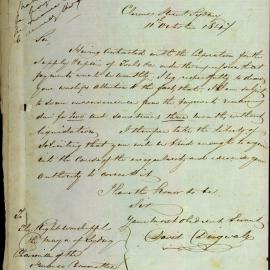 Clarence Street Sydney
11 October 1847
Sir,
Having Contracted with the Corporation for the
Supply & Repairs of Tools &c under the impression that
payments would be monthly, I beg respectfully to draw
your worships attention to the fact, that I am subject
to some inconvenience from the payments remaining
due for two and sometimes three months without
liquidation. I therefore take the liberty of
soliciting that you will be kind enough to
the Cause of the irregularity and
authority to correct it
I have the honor to be
Sir
Your most obedient Servant
David
To
The Right Worshipful
The Mayor of Sydney
Chairman of the
Committee